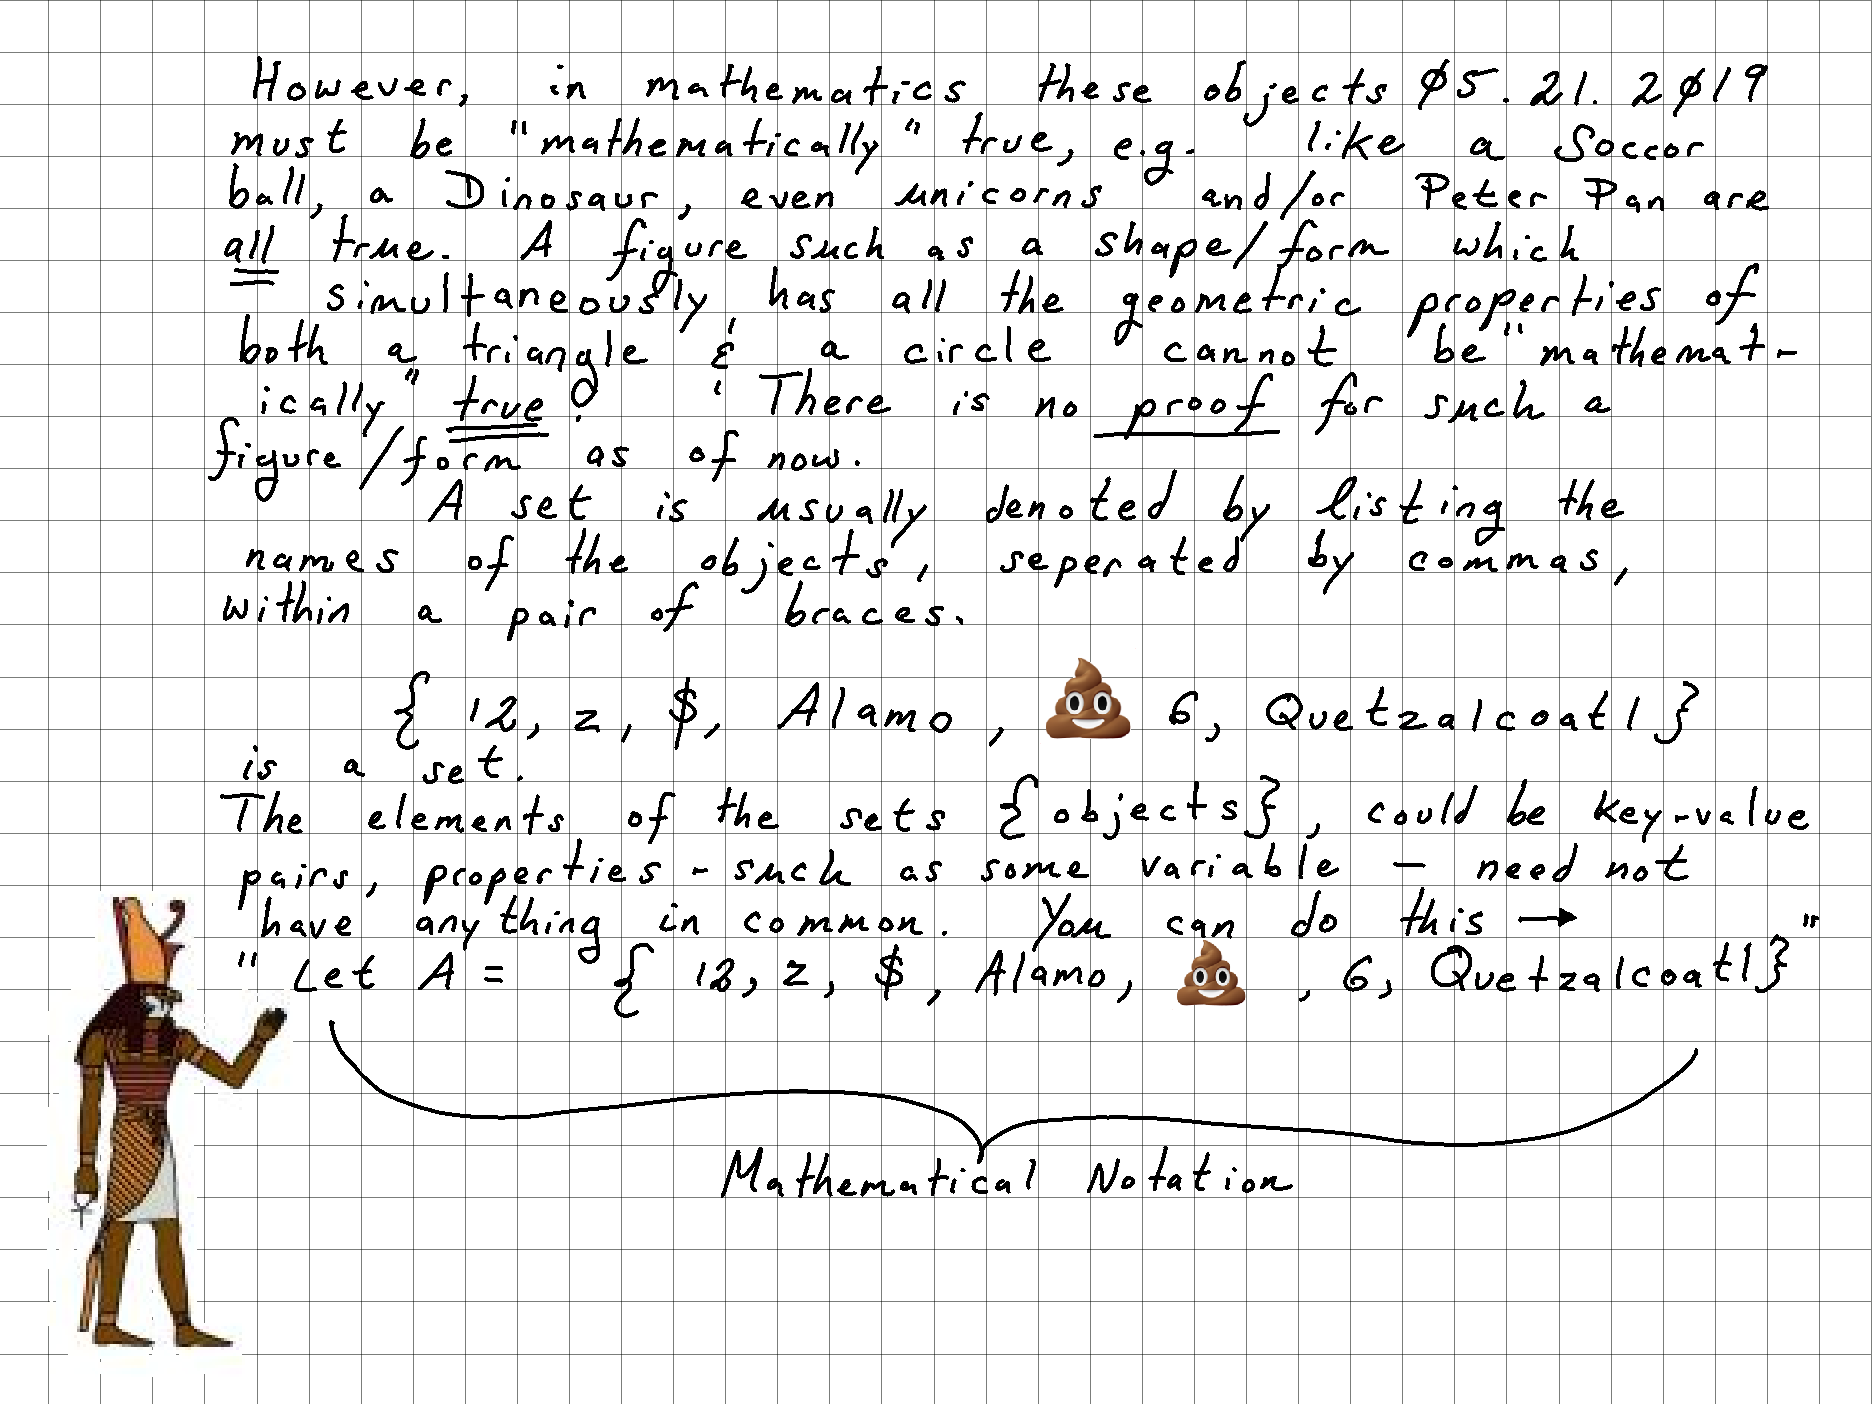 However, in mathematics these objects Ø5.21.2Ø19
must be "mathematically" true, e.g. like a Soccor
ball, a Dinosaur, even unicorns and/or Peter Pan are
all true. A figure such as a shape/form which
simultaneously has all the geometric properties of
both a triangle & a circle cannot be "mathemat-
ically" true! There is no proof for such a
figure/form as of now.
A set is usually denoted by listing the
names of the objects, seperated by commas,
within a pair of braces.
{ 12, z, $, Alamo, 💩 6, Quetzalcoatl }
is a set.
The elements of the sets {objects}, could be key-value
pairs, properties - such as some variable - need not
have any thing in common. You can do this →
"Let A = { 12, z, $, Alamo, 💩, 6, Quetzalcoatl}"
Mathematical Notation